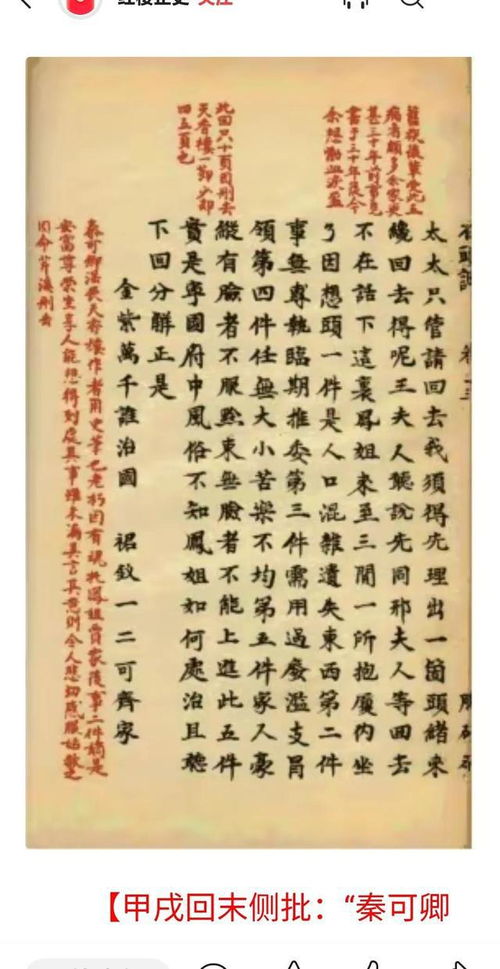 关注
舊族後輩受此五
病者頗多余家更
甚三十年前事見
書于三十年後今
余想慟血淚盈
此回只十頁因刪去
天香樓一節少却
四五頁也
太太只管請回去我須得先理出一箇頭緒來
纔回去得呢王夫人聽說先同邢夫人等回去
不在話下這裏鳳姐來至三間一所抱厦内坐
了因想頭一件是人口混雜遺失東西第二件
事無專執臨期推委第三件需用過廢濫支冒
領第四件任無大小苦樂不均第五件家人豪
縱有臉者不服鈐束無臉者不能上進此五件
實是寧國府中風俗不知鳳姐如何處治且聽
下回分解正是
金紫萬千誰治國 裙釵一二可齊家
秦可卿淫喪天香樓作者用史筆也老朽因有魂托鳳姐賈家後事二件嫡是
安富尊榮坐享人能想得到處其事雖未漏其言其意則令人悲切感服姑赦之
因命芹溪刪去
【甲戌回末侧批：“秦可卿